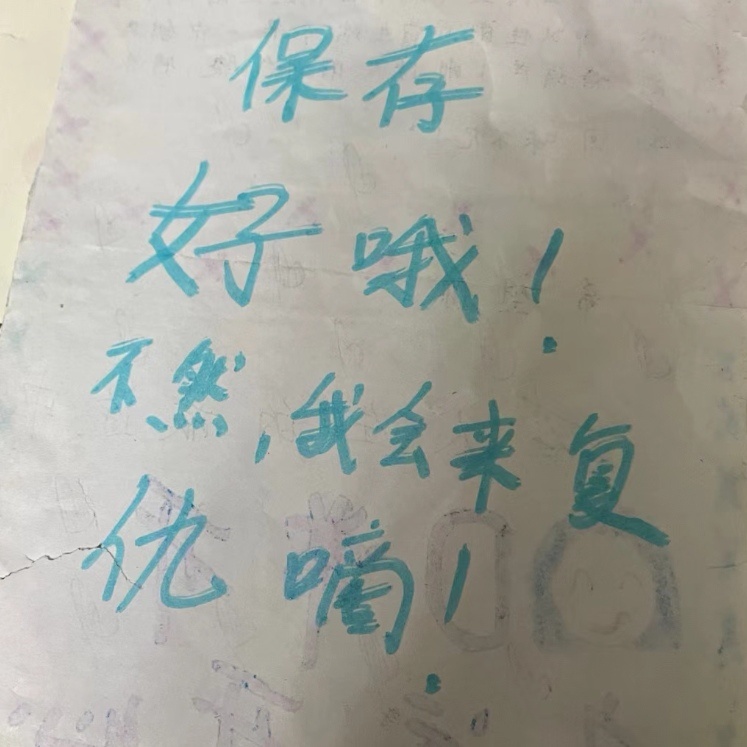 保存
好哦！
不然，我会来复
仇嘀！